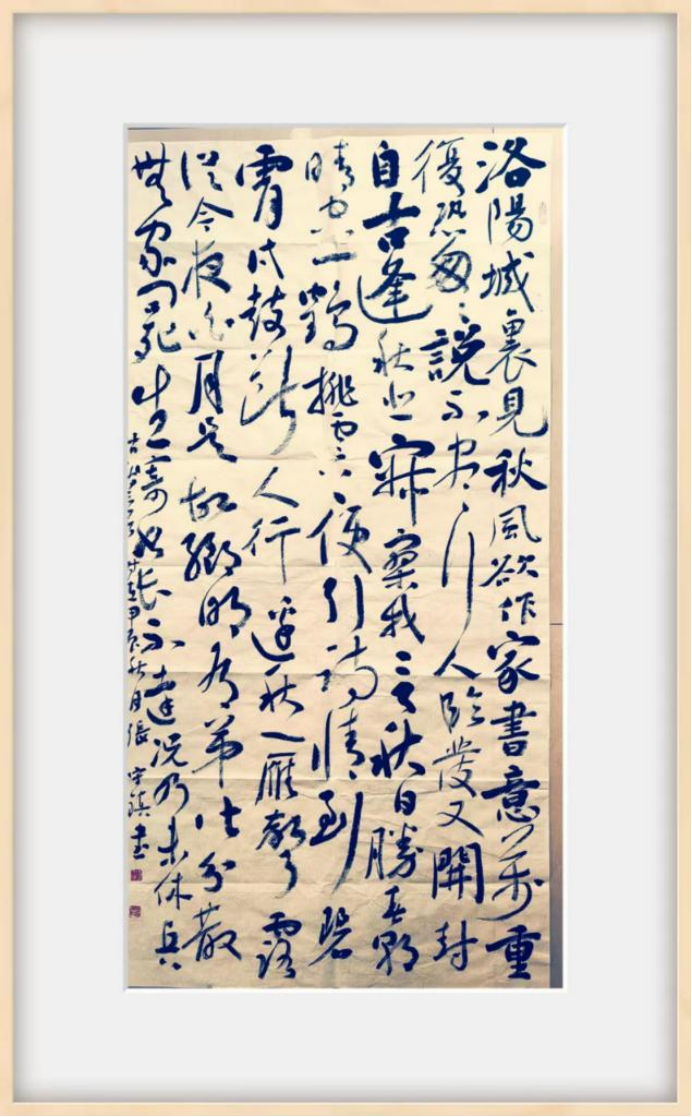 洛陽城裏見秋風欲作家書意萬重
復恐匆匆說不盡行人臨發又開封
自古逢秋悲寂寥我言秋日勝春朝
晴空一鶴排雲上便引詩情到碧
霄戍鼓斷人行邊秋一雁聲露
從今夜白月是故鄉明有弟皆分散
無家問死生寄書長不達況乃未休兵
古詩三首秋月張守鎮書